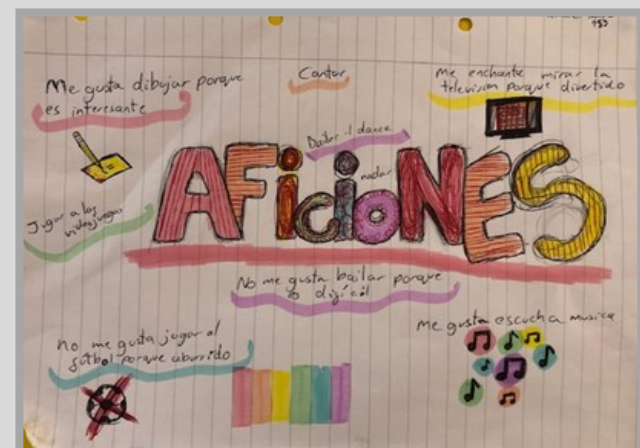 Me gusta dibujar porque
es interesante
Cantar
Me enchante mirar la
television porque divertido
Bailar
dance
nadar
AFiCioNES
Jugar a los
videojuegos
No me gusta bailar porque
difícil
no me gusta jugar al
fútbol porque aburrido
me gusta escucha musica